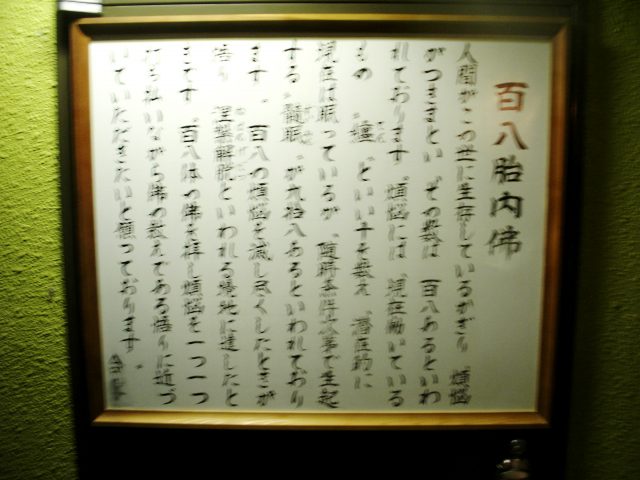 百八胎内佛
人間がこの世に生存しているかぎり 煩悩
がつきまとい、その数は 百八あるといわ
れております。煩悩には、現在動いている
もの〝纏〟といい十を数え、潜在的に
現在は眠っているが、随時条件次第で生起
する〝髄眠〟が九拾八あるといわれており
ます。百八つ煩悩を滅し尽くしたときが
悟り 涅槃解脱といわれる境地に達したと
まです。百八体の佛を拝し煩悩を一つ一つ
打ち払いながら佛の教えである悟りに近づ
いていただきたいと願っております。